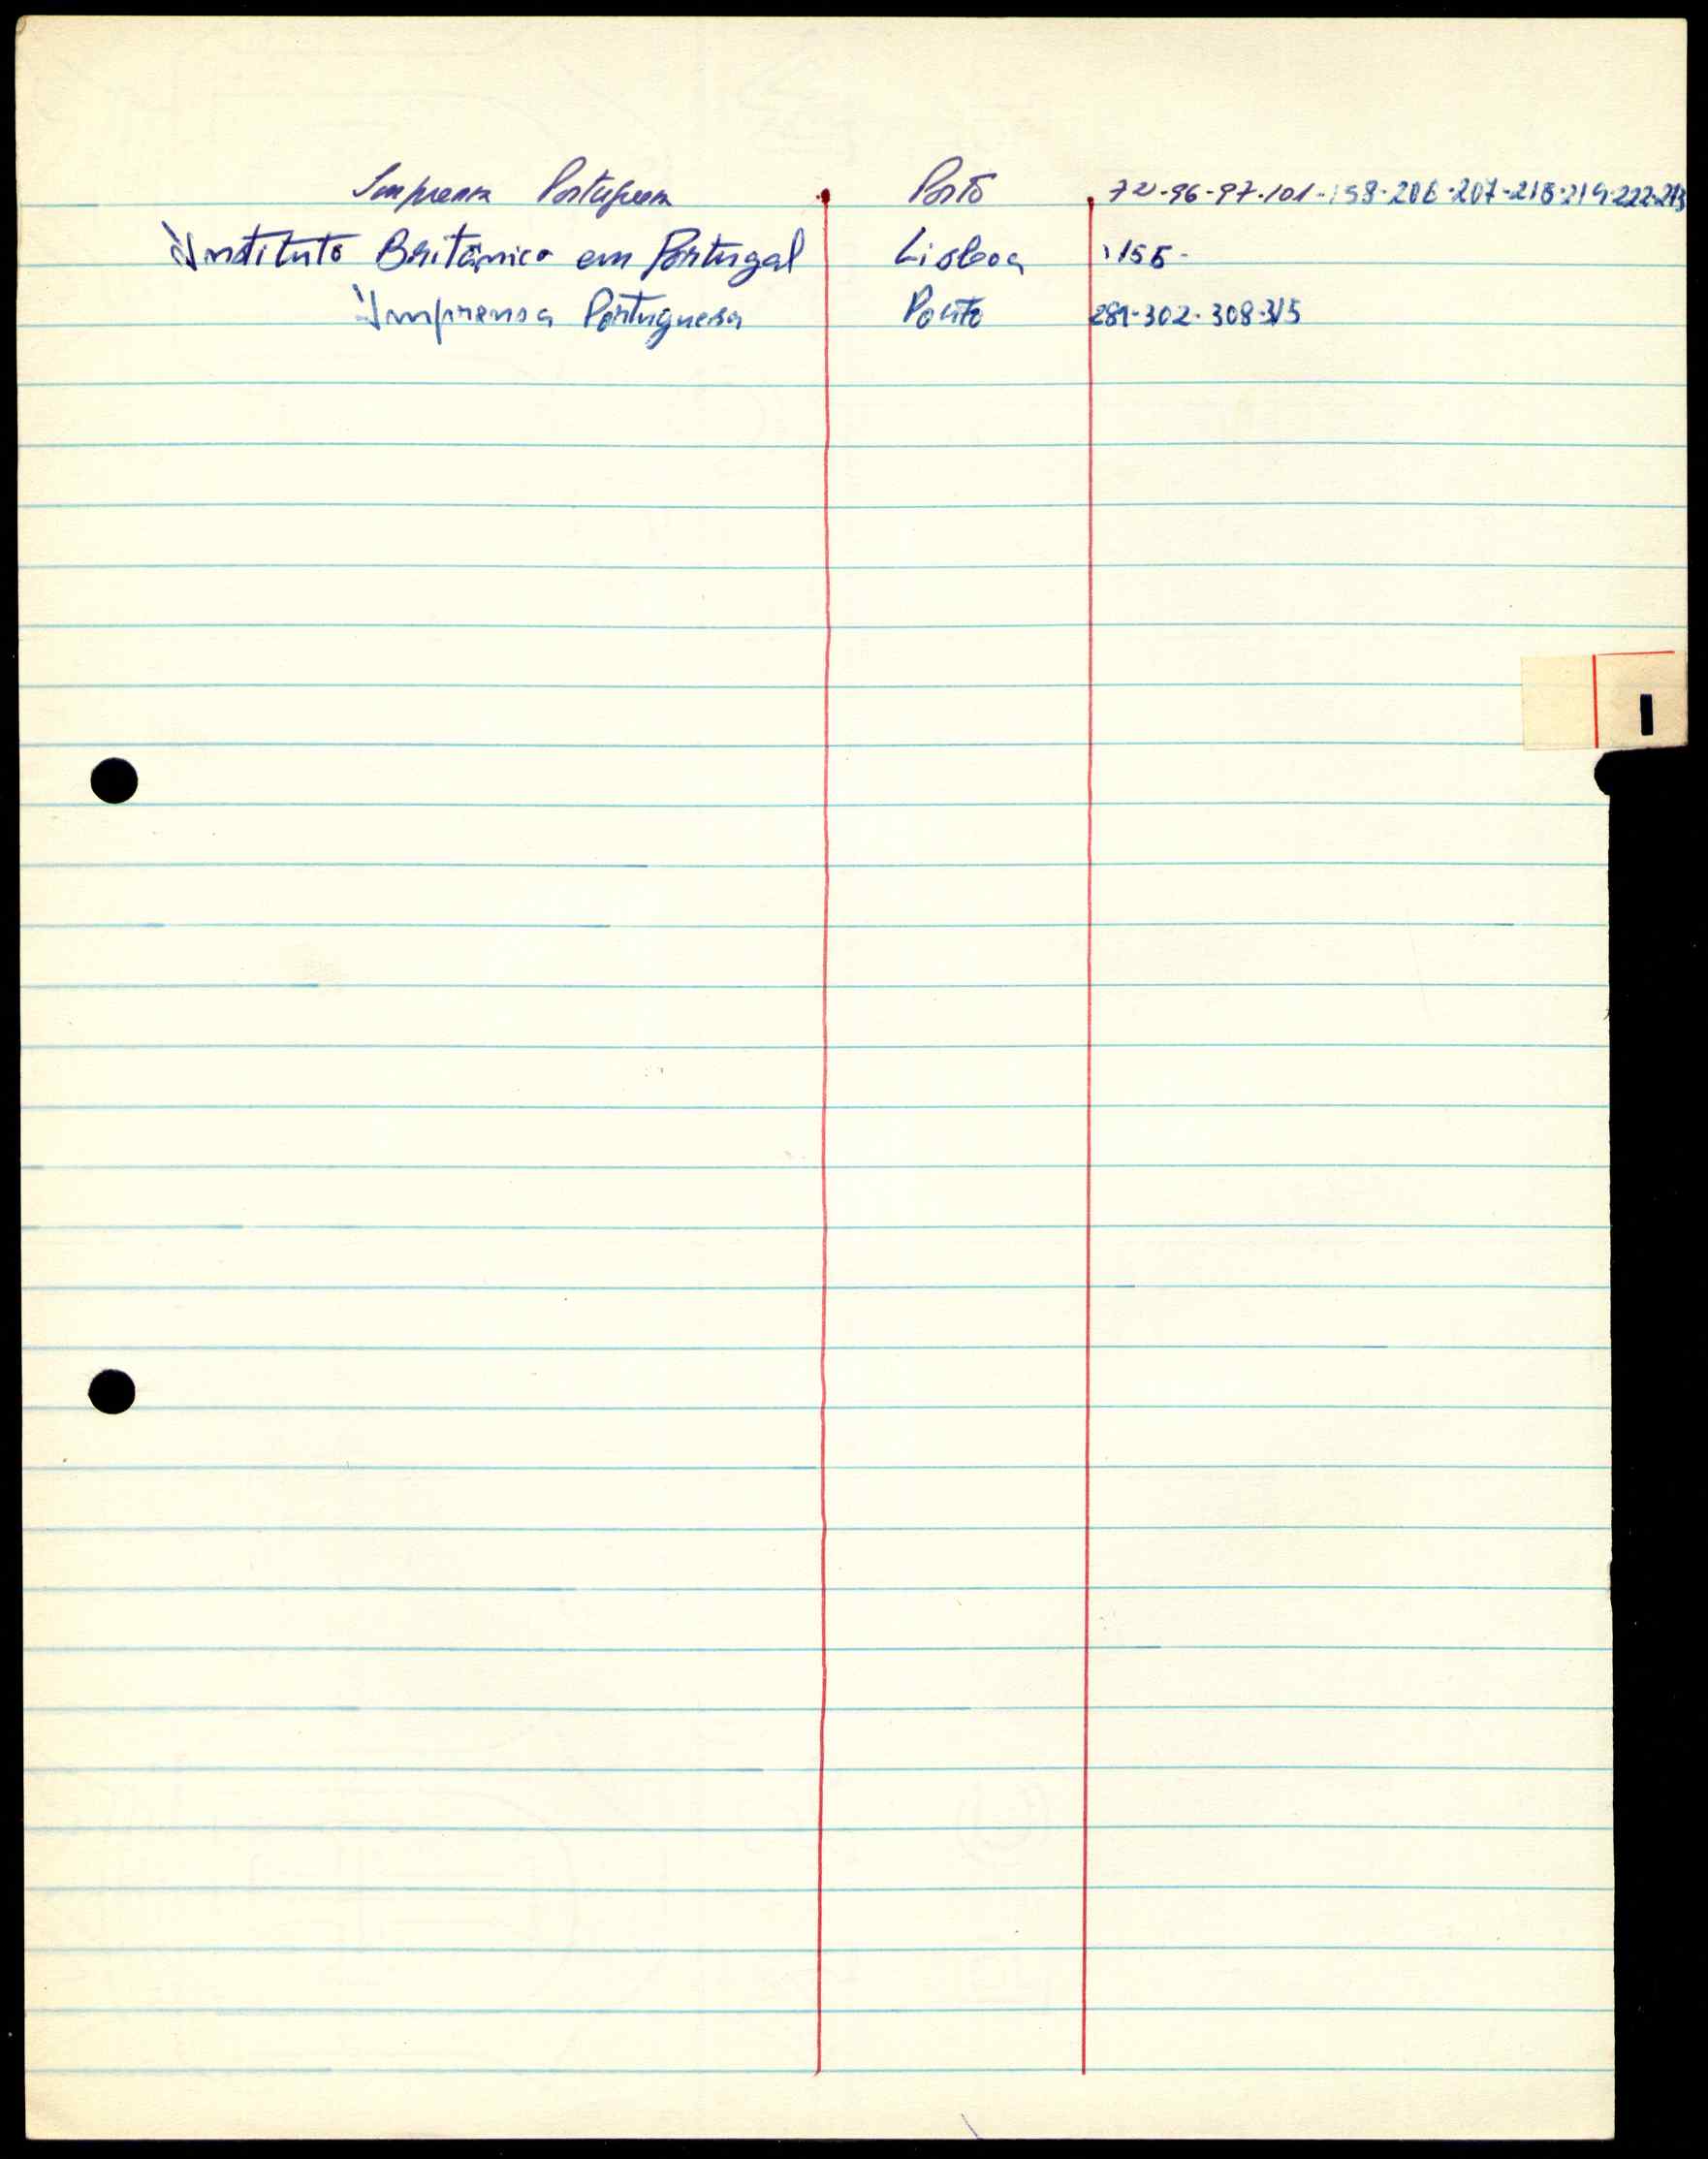 Imprensa Portuguesa Porto 72-96-97-101-158-206-207-218-219-222-243
Instituto Britânico em Portugal Lisboa 155-
Imprensa Portuguesa Porto 281-302-308-315
I